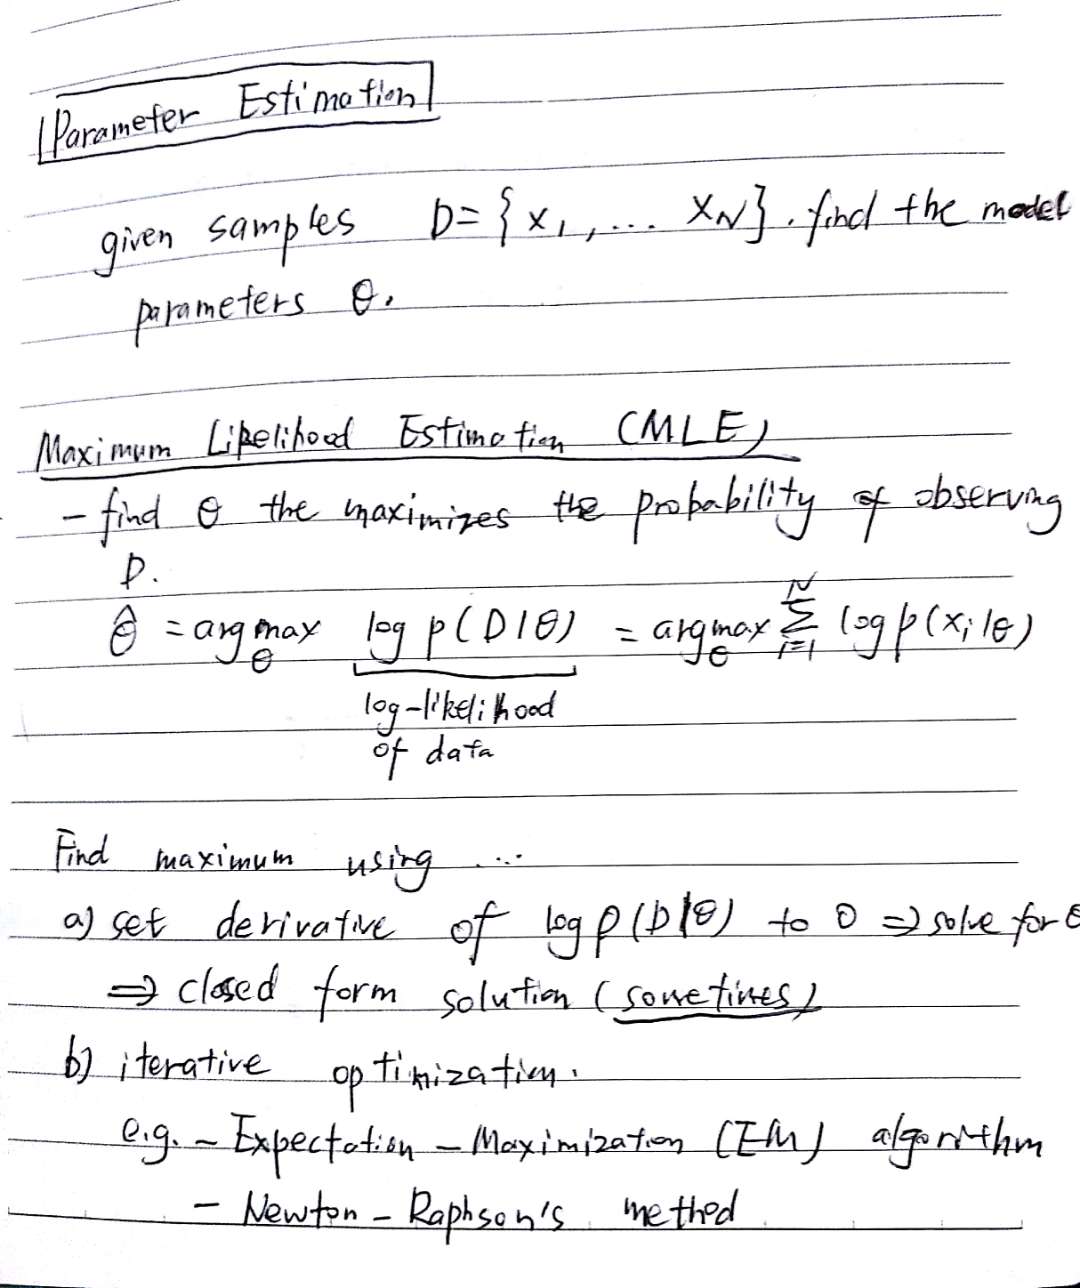 Parameter Estimation
given samples D = {x₁, ... x_N}. find the model
parameters θ.
Maximum Likelihood Estimation (MLE)
- find θ the maximizes the probability of observing
D.
θ̂ = argmax_θ log p(D|θ) = argmax_θ Σ_{i=1}^{N} log p(x_i|θ)
log-likelihood
of data
Find maximum using ...
a) set derivative of log p(D|θ) to 0 ⇒ solve for θ
⇒ closed form solution (sometimes)
b) iterative optimization.
e.g. - Expectation - Maximization (EM) algorithm
- Newton - Raphson's method